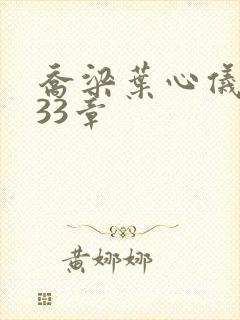 乔梁葉心儀
33章
黄娜娜